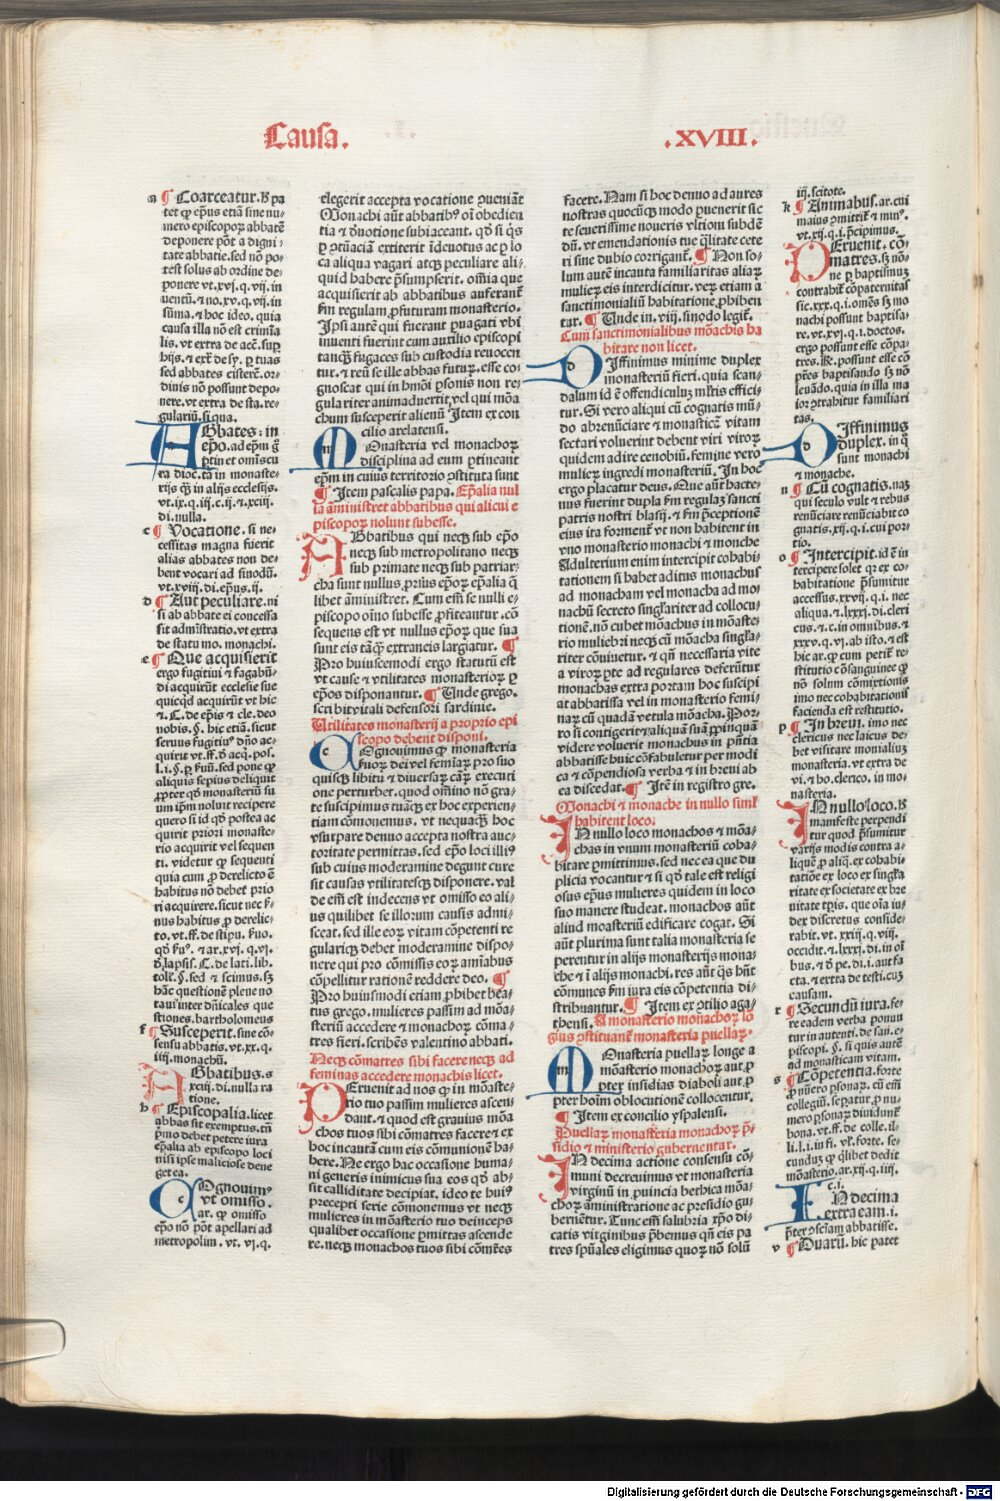 Causa.
.XVIII.
¶ Coarceatur. ꝟ pa
tet ꝙ ep̄us etiā sine nu-
mero episcoporꝝ abbatē
deponere pōt a digni
tate abbatie. sed nō po-
test solus ab ordine de-
ponere vt. xvj. q. vij. in
causa illa nō est crimīa
sed abbates cisterē. or-
dinis nō possunt depo-
nere. vt extra de sta. re-
gulariū. si qua.
Abbates: in
ra dioc. tā in monaste-
rijs ꝙ in alijs ecclesijs.
vt. ix. q. iij. c. ij. ⁊. xciij.
di. nulla.
c ¶ Vocatione. si ne-
cessitas magna fuerit
alias abbates non de-
bent vocari ad sinodū.
vt. xviij. di. ep̄us. ij.
d ¶ Aut peculiare. ni
si ab abbate ei concessa
fit admistratio. vt extra
de statu mo. monachi.
e ¶ Que acquisierit
ergo fugitiui ⁊ fagabū-
di acquirūt ecclesie sue
quicꝙd acquirūt vt hic
⁊. C. de ep̄is ⁊ cle. deo
nobis. §. hic etiā. sicut
aliquis sepius deliquit
ꝓpter qd̄ monasteriū su
um ip̄m noluit recipere
quero si id qd̄ postea ac
quirit priori monaste-
rio acquirit vel sequen
ti. videtur ꝙ sequenti
quia cum ꝓ derelicto ē
habitus nō debet prio
ri acquirere. sicut nec ẜ-
nus habitus ꝓ derelic-
hāc questionē plene no
tauⁱ inter dn̄icales que
stiones. bartholomeus
f ¶ Susceperit. sine cō-
sensu abbatis. vt. xx. q.
iiij. monachū.
Abbatibus. s
xciij. di. nulla ra
tione.
h ¶ Episcopalia. licet
abbas sit exemptus. tn̄
pⁱmo debet petere iura
ep̄alia ab episcopo loci
nisi ipse maliciose dene
get ea.
Cognouimꝰ
vt omisso.
ar. ꝙ omisso
ep̄o nō pōt apellari ad
metropolim. vt. vj. q.
elegerit accepta vocatione ꝓueniāt
Monachi aūt abbatibꝰ oī obedien
tia ⁊ deuotione subiaceant. qd̄ si q̄s
ꝑ ꝯtuāciā extiterit īdeuotus ac ꝑ lo
ca aliqua vagari atqꝫ peculiare ali-
quid habere p̄sumpserit. oīnia que
acquisierit ab abbatibus auferant̄
ẜm regulam ꝓfuturam monasterio.
Ipsi autē qui fuerant ꝑuagati vbi
inuenti fuerint cum auxilio episcopi
tanqꝫ fugaces sub custodia reuocen
tur. ⁊ reū se ille abbas futuꝝ. esse co-
gnoscat qui in hm̄oi ꝑsonis non re-
gulariter animaduertit. vel qui mōa
chum susceperit alienū Item ex con
cilio arelatensi.
Monasteria vel monachoꝝ
disciplina ad eum ꝑtineant
ep̄m in cuius territorio ꝯstituta sunt
¶ Item pascalis papa. Ep̄alia nul
la āministret abbatibus qui alicui e
piscoporꝝ nolunt subesse.
Abbatibus qui neqꝫ sub ep̄o
neqꝫ sub metropolitano neqꝫ
sub primate neqꝫ sub patriar-
cha sunt nullus ꝓrsus ep̄orꝝ ep̄alia q̄
libet āministret. Cum em̄ se nulli e-
piscopo oīno subesse ꝓfiteantur. cō
sequens est vt nullus ep̄orꝝ que sua
sunt eis tāqꝫ extraneis largiatur. ¶
Pro huiuscemodi ergo statutū est
vt cause ⁊ vtilitates monasteriorꝝ ꝑ
ep̄os disponantur. ¶ Unde grego.
scribit vitali defensori sardinie.
Utilitates monasterij a proprio epi
scopo debent disponi.
Cognouimus ꝙ monasteria
ẜuorꝝ dei vel femīarꝝ pro suo
quisqꝫ libitu ⁊ diuersarꝝ cārꝝ executi
one perturbet. quod omīno nō gra-
te suscipimus tuāqꝫ ex hoc experien-
tiam cōmonemus. vt nequaqꝫ hoc
vsurpare denuo accepta nostra auc-
toritate permittas. sed ep̄o loci illiꝰ
sub cuius moderamine degunt cure
sit causas vtilitatesqꝫ disponere. val
de em̄ est indecens vt omisso eo ali-
us quilibet se illorum causis admi-
sceat. sed ille eorꝝ vitam cōpetenti re
gulariqꝫ debet moderamine dispo-
nere qui pro cōmissis eorꝝ aīabus
cōpellitur rationē reddere deo. ¶
Pro huiusmodi etiam ꝓhibet bēa-
tus grego. mulieres passim ad mōa-
steriū accedere ⁊ monachorꝝ cōma-
tres fieri. scribēs valentino abbati.
Neqꝫ cōmatres sibi facere neqꝫ ad
feminas accedere monachis licet.
Peruenit ad nos ꝙ in mōaste-
rio tuo passim mulieres ascen-
dant. ⁊ quod est grauius mōa
chos tuos sibi cōmatres facere ⁊ ex
hoc incautā cum eis cōmunionē ha-
bere. Ne ergo hac occasione huma-
ni generis inimicus sua eos qd̄ ab-
sit calliditate decipiat. ideo te huiꝰ
precepti serie cōmonemus vt neqꝫ
mulieres in mōasterio tuo deinceps
qualibet occasione ꝑmittas ascende
re. neqꝫ monachos tuos sibi cōmr̄es
facere. Nam si hoc denuo ad aures
nostras quocūqꝫ modo ꝑuenerit sic
te seuerissime noueris vltioni subdē
dū. vt emendationis tue q̄litate cete
ri sine dubio corrigant̄. ¶ Non so-
lum autē incauta familiaritas aliarꝝ
mulierꝝ eis interdicitur. verꝝ etiam a
sanctimonialiū habitatione ꝓhiben
tur. ¶ Unde in. viij. sinodo legit̄.
Cum sanctimonialibus mōachis ha
bitare non licet.
Diffinimus minime duplex
monasteriū fieri. quia scan-
dalum id ē offendiculum ml̄tis effici-
tur. Si vero aliqui cū cognatis mū-
do abrenūciare ⁊ monasticā vitam
sectari voluerint debent viri virorꝝ
quidem adire cenobiū. femine vero
mulierꝝ ingredi monasteriū. In hoc
ergo placatur deus. Que aūt hacte-
nus fuerint dupla ẜm regulaꝫ sancti
patris nostri blasij. ⁊ ẜm p̄ceptionē
eius ita forment̄ vt non habitent in
vno monasterio monachi ⁊ monche
Adulterium enim intercipit cohabi-
tationem si habet aditus monachus
ad monacham vel monacha ad mo-
nachū secreto singl̄ariter ad collocu-
tionē. nō cubet mōachus in mōaste-
rio muliebri neqꝫ cū mōacha singl̄a-
riter cōuiuetur. ⁊ qn̄ necessaria vite
a virorꝝ ꝑte ad regulares deferūtur
monachas extra portam hoc suscipi
at abbatissa vel in monasterio femi-
narꝝ cū quadā vetula mōacha. Por-
ro si contigerit ⁊ aliquā suā ꝓpinquā
videre voluerit monachus in p̄sētia
abbatisse huic cōfabuletur per modi
ca ⁊ cōpendiosa verba ⁊ in breui ab
ea discedat. ¶ Itē in registro gre.
Monachi ⁊ monache in nullo simul
habitent loco.
In nullo loco monachos ⁊ mōa-
chas in vnum monasteriū coha-
bitare ꝑmittimus. sed nec ea que du
plicia vocantur ⁊ si qd̄ tale est religi
osus ep̄us mulieres quidem in loco
suo manere studeat. monachos aūt
aliud moasteriū edificare cogat. Si
aūt plurima sunt talia monasteria se
perentur in alijs monasterijs mona-
che ⁊ ī alijs monachi. res aūt qs̄ hn̄t
cōmunes ẜm iura eis cōpetentia di-
stribuantur. ¶ Item ex ꝯcilio aga-
thensi. A monasterio monachorꝝ lō
gius ꝯstituant̄ monasteria puellarꝝ.
Monasteria puellarꝝ longe a
mōasterio monachorꝝ aut ꝓ
pter insidias diaboli aut ꝓ
pter hoīm oblocutionē collocentur.
¶ Item ex concilio yspalensi.
Puellarꝝ monasteria monachorꝝ p̄-
sidio ⁊ ministerio gubernentur.
In decima actione consensu cō-
muni decreuimus vt monasteria
virginū in ꝓuincia bethica mōa-
chorꝝ aministratione ac presidio gu-
bernētur. Tunc em̄ salubria xp̄o di-
catis virginibus ꝓbemus qn̄ eis pa
tres spūales eligimus quorꝝ nō solū
iij. scitote.
k ¶ Animabus. ar. cui
vt. xij. q. i. p̄cipimus.
Peruenit. cō-
matres. sꝫ nō-
ne ꝑ baptismuꝫ
contrahit̄ cōpaternitas
sic. xxx. q. i. omēs sꝫ mo
nachi possunt baptisa-
re. vt. xvj. q. i. doctos.
ergo possunt esse cōpa-
pr̄es baptisando sꝫ nō
leuādo. quia in illa ma
ior ꝯtrahitur familiari
tas.
Diffinimus
duplex. in q̄
sunt monachi
⁊ monache.
n ¶ Cū cognatis. naꝫ
qui seculo vult ⁊ rebus
renūciare renūciabit co
gnatis. xij. q. i. cui por-
tio.
o ¶ Intercipit. id ē in
tercipere solet qꝛ ex co-
habitatione p̄sumitur
accessus. xxvij. q. i. nec
aliqua. ⁊. lxxxj. di. cleri
cus. ⁊. c. in omnibus. ⁊
xxxv. q. vj. ab isto. ⁊ est
stitutio cōsanguinee ꝙ
nō solum cōmixtionis
imo nec cohabitationiſ
facienda est restitutio.
p ¶ In breui. imo nec
clericus nec laicus de-
bet visitare monialiuꝫ
monasteria. vt extra de
vi. ⁊ ho. clerico. in mo-
nasteria.
In nullo loco. ꝟ
manifeste perpendi
tur quod p̄sumitur
varijs modis contra a-
liquē ꝓ aliq̄. ex cohabi
tatiōe ex loco ex singl̄a
ritate ex societate ex bre
uitate tp̄is. que oīa iu-
dex discretus conside-
rabit. vt. xxiij. q. viij.
occidit. ⁊. lxxxj. di. in oī
bus. ⁊ de pe. di. i. aut fa
cta. ⁊ extra de testi. cuꝫ
causam.
r ¶ Secundū iura. fe-
re eadem verba ponun
tur in auten. de san. e-
piscopi. §. si quis autē
ad monasticam vitam.
s ¶ Cōpetentia. forte
collegiū. seꝑatur. ꝓ nu-
mero ꝑsonarꝝ diuidunt̄
bona. vt. ff. de colle. il-
li. l. i. in fi. vl̓. forte. se-
cunduꝫ ꝙ q̄libet dedit
mōasterio. ar. xij. q. iiij.
c. i.
In decima
extra eam. i.
p̄ter ꝯsciam abbatisse.
v ¶ Quarū. hic patet
Digitalisierung gefördert durch die Deutsche Forschungsgemeinschaft - DFG